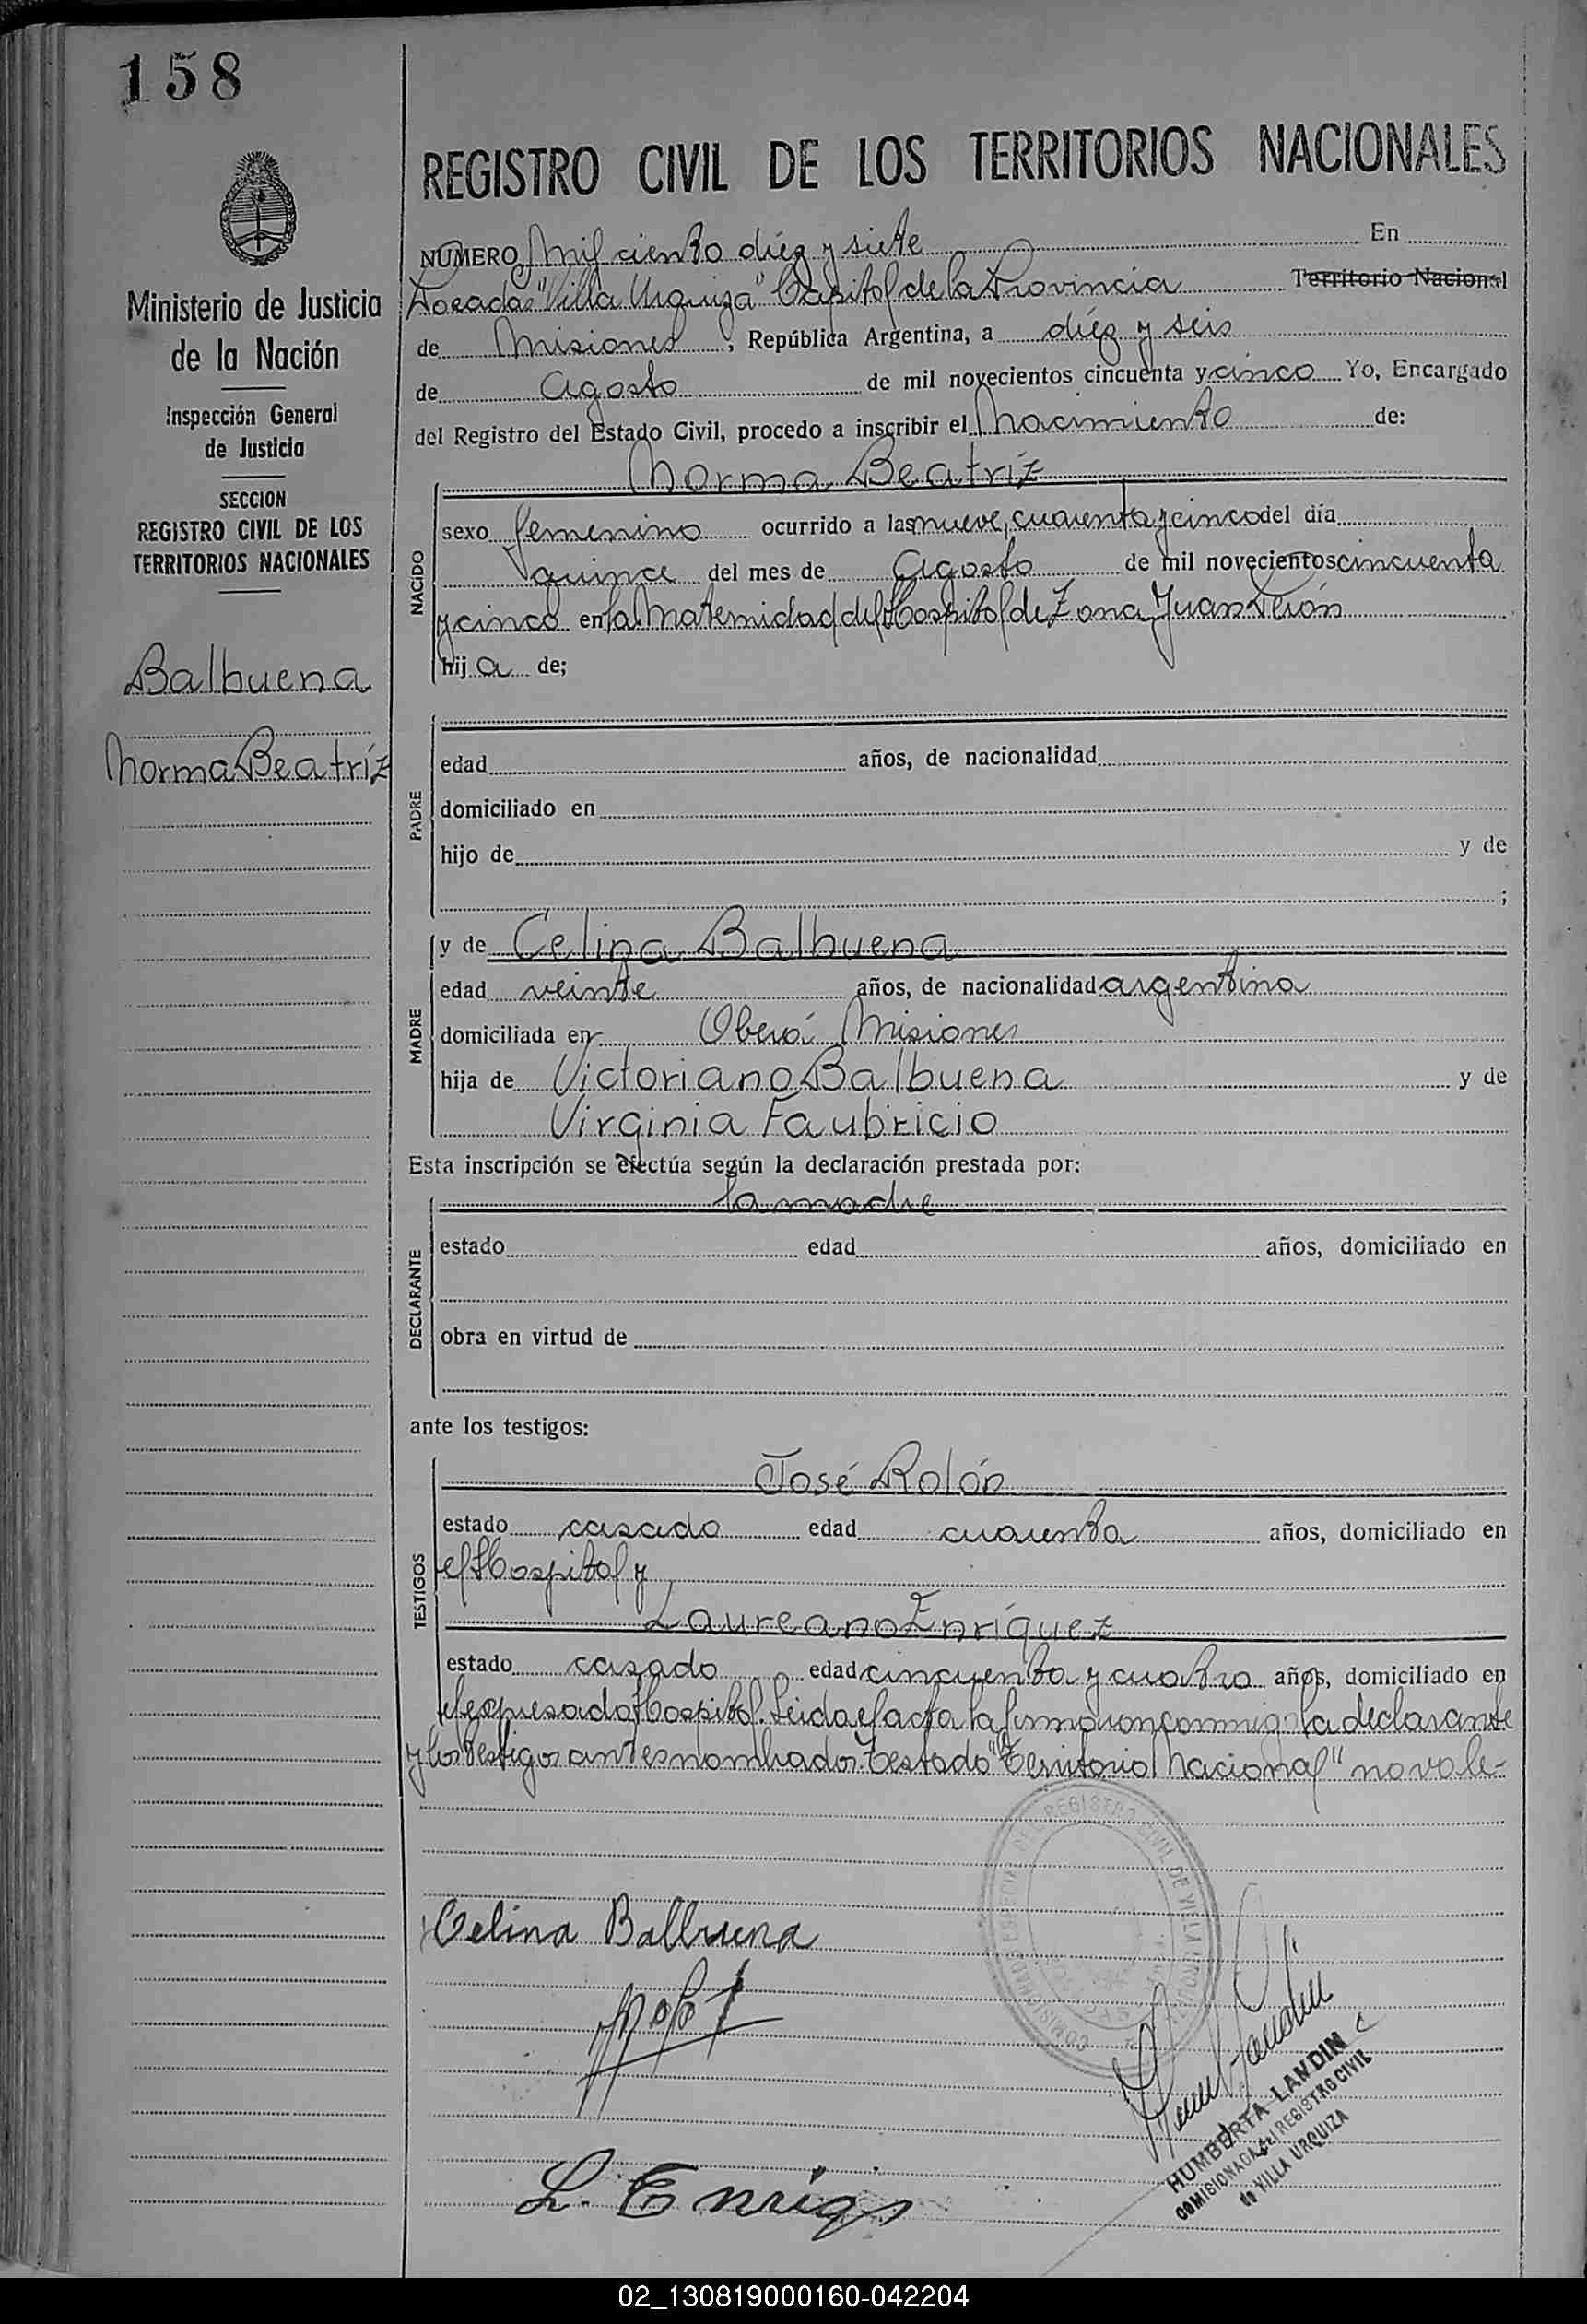 158
REGISTRO CIVIL DE LOS TERRITORIOS NACIONALES
Ministerio de Justicia
de la Nación
Inspección General
de Justicia
SECCION
REGISTRO CIVIL DE LOS
TERRITORIOS NACIONALES
Balbuena
Norma Beatríz
NUMERO Mil ciento diéz y siete En
Posadas "Villa Urquiza" Capital de la Provincia Territorio Nacional
de Misiones, República Argentina, a diéz y seis
de Agosto de mil novecientos cincuenta y cinco Yo, Encargado
del Registro del Estado Civil, procedo a inscribir el Nacimiento de:
Norma Beatríz
NACIDO
sexo femenino ocurrido a las nueve, cuarenta y cinco del día
quince del mes de Agosto de mil novecientos cincuenta
y cinco en la Maternidad del Hospital de Zona Juan Perón
hija de;
PADRE
edad años, de nacionalidad
domiciliado en
hijo de y de
;
MADRE
y de Celina Balbuena
edad veinte años, de nacionalidad argentina
domiciliada en Oberá Misiones
hija de Victoriano Balbuena y de
Virginia Faubricio
Esta inscripción se efectúa según la declaración prestada por:
la madre
DECLARANTE
estado edad años, domiciliado en
obra en virtud de
ante los testigos:
TESTIGOS
José Rolón
estado casado edad cuarenta años, domiciliado en
el Hospital y
Laureano Enríquez
estado casado edad cincuenta y cuatro años, domiciliado en
el expresado Hospital. Leida el acta la firmaron conmigo la declarante
y los testigos antes nombrados. Testado "Territorio Nacional" no vale-
COMISIONADA ESPECIAL DEL REGISTRO CIVIL DE VILLA URQUIZA
Celina Balbuena
L. Enriqz
HUMBERTA LANDIN
COMISIONADA del REGISTRO CIVIL
de VILLA URQUIZA
02_130819000160-042204